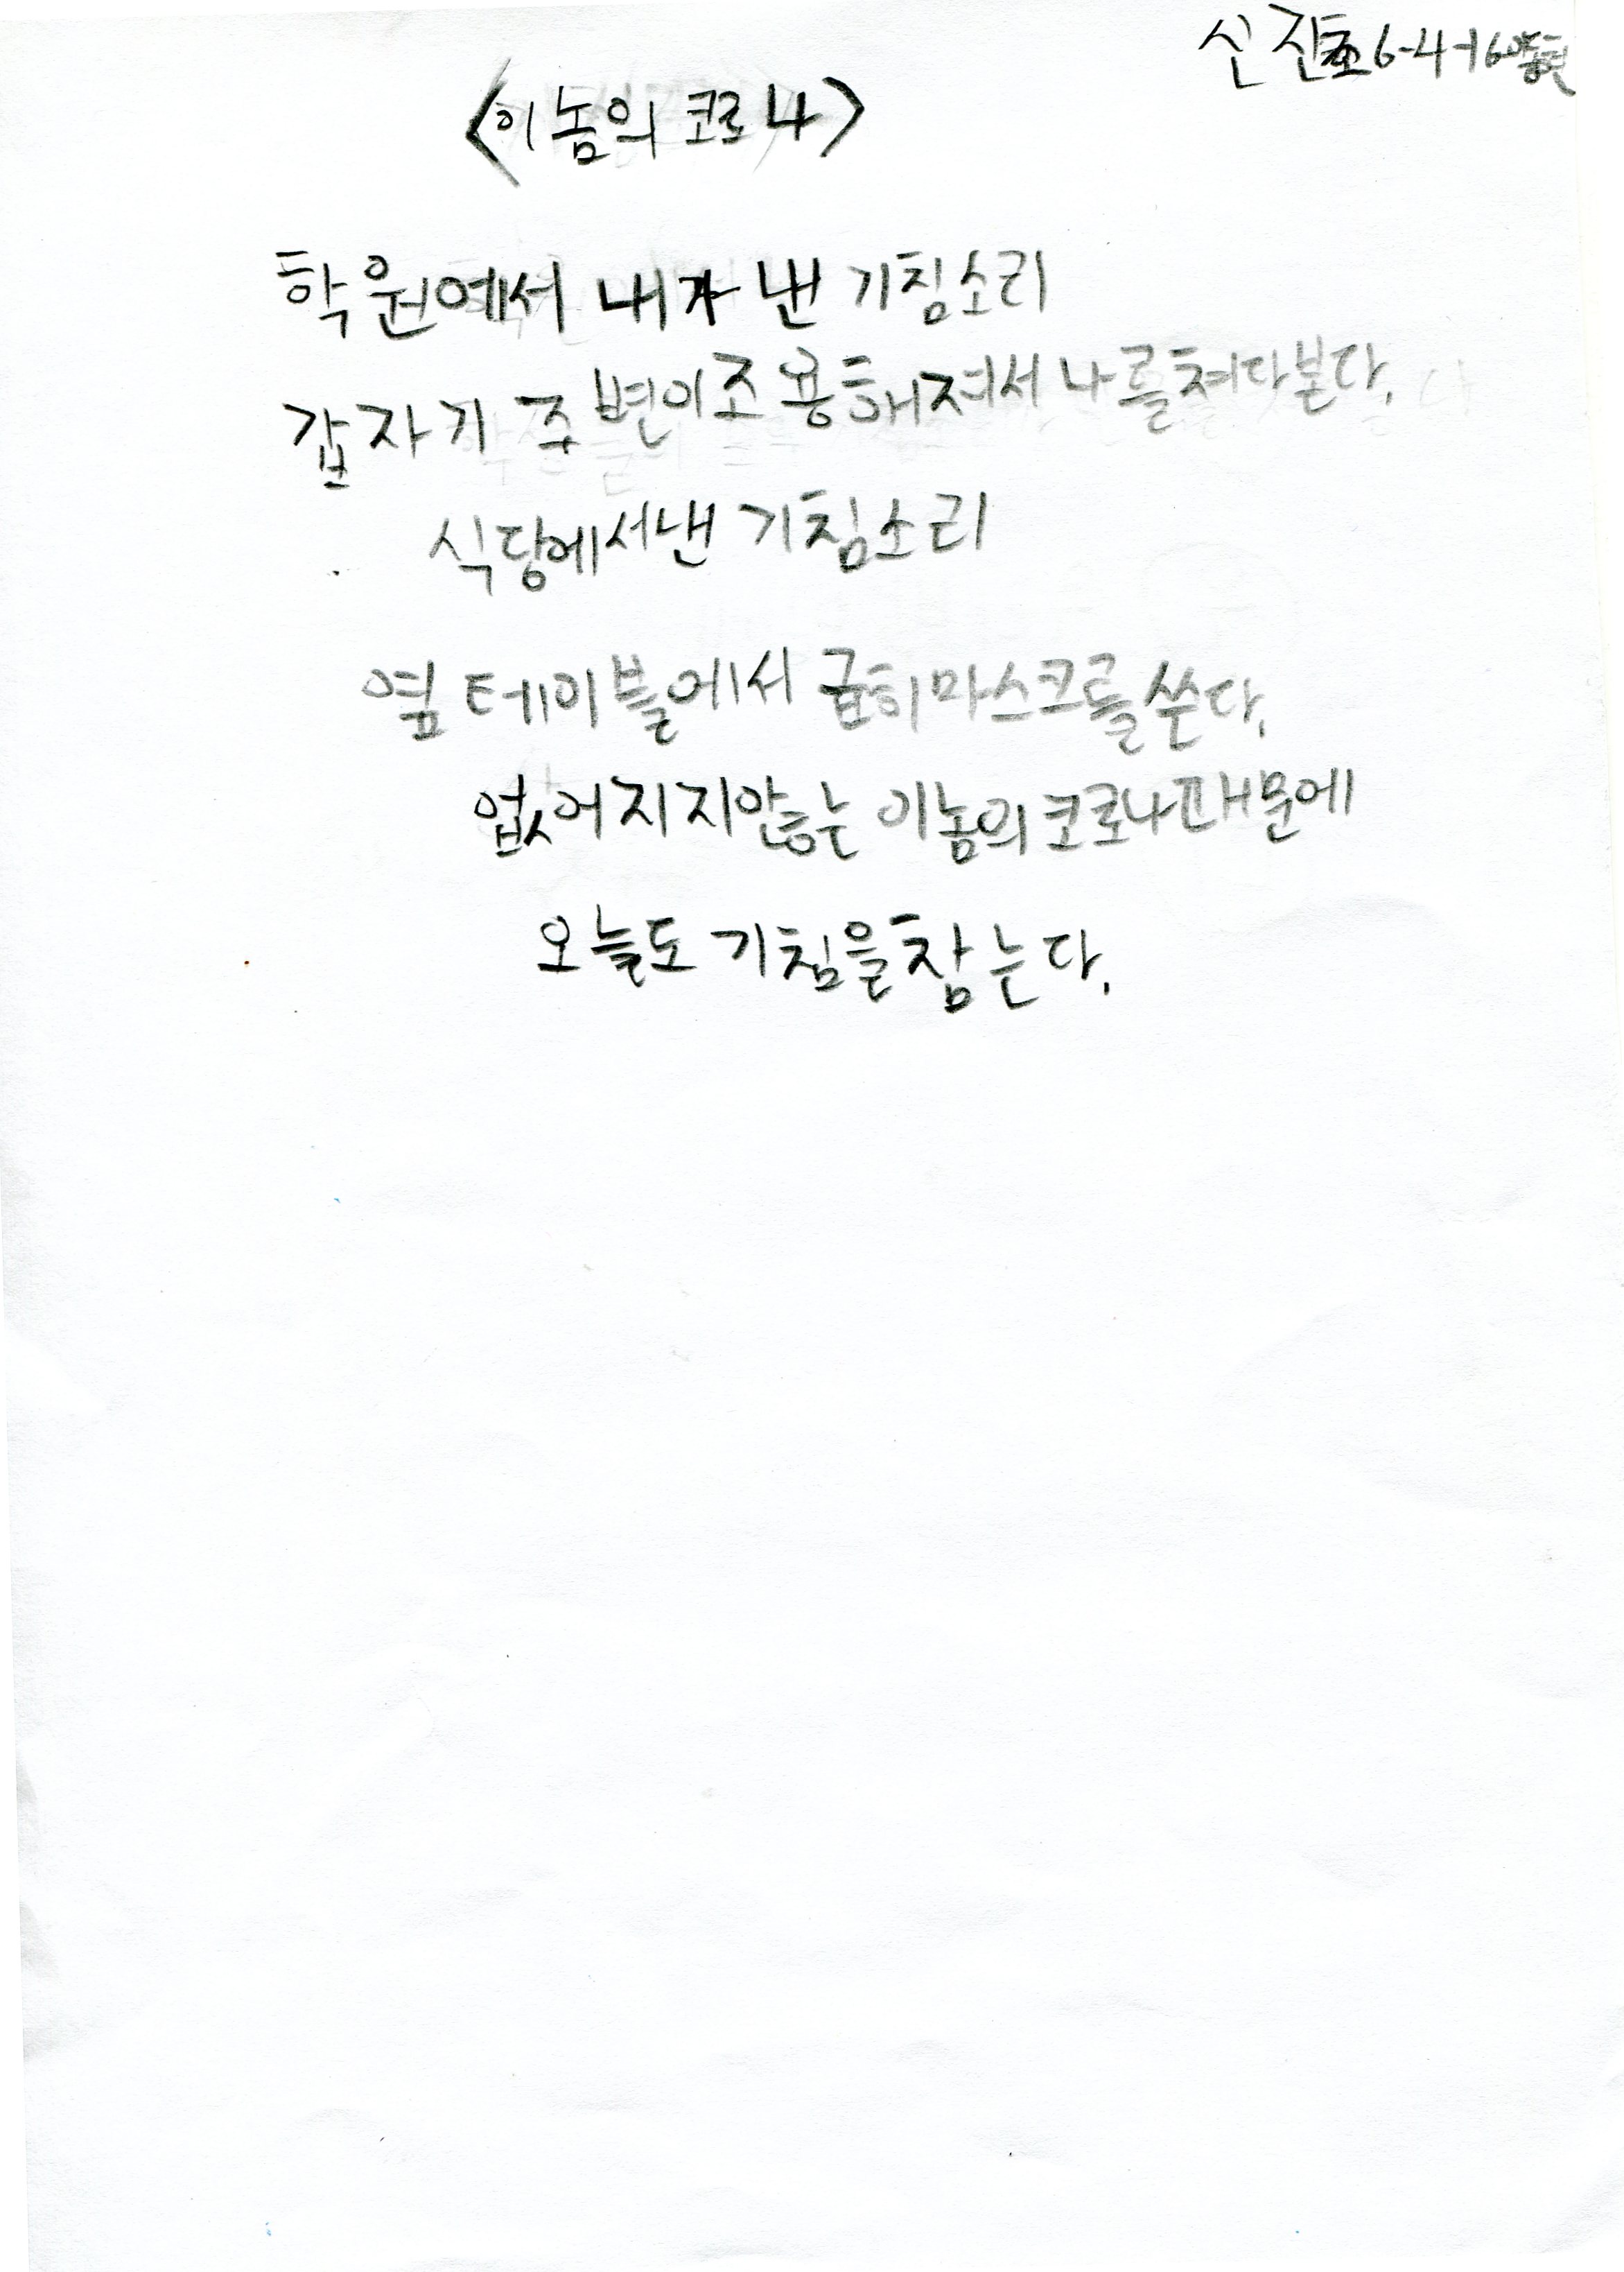 신진초 6-4-16
<이놈의 코로나>
학원에서 내가 낸 기침소리
갑자기 주변이 조용해져서 나를 쳐다본다.
식당에서 낸 기침소리
옆 테이블에서 급히 마스크를 쓴다.
없어지지 않는 이놈의 코로나 때문에
오늘도 기침을 참는다.